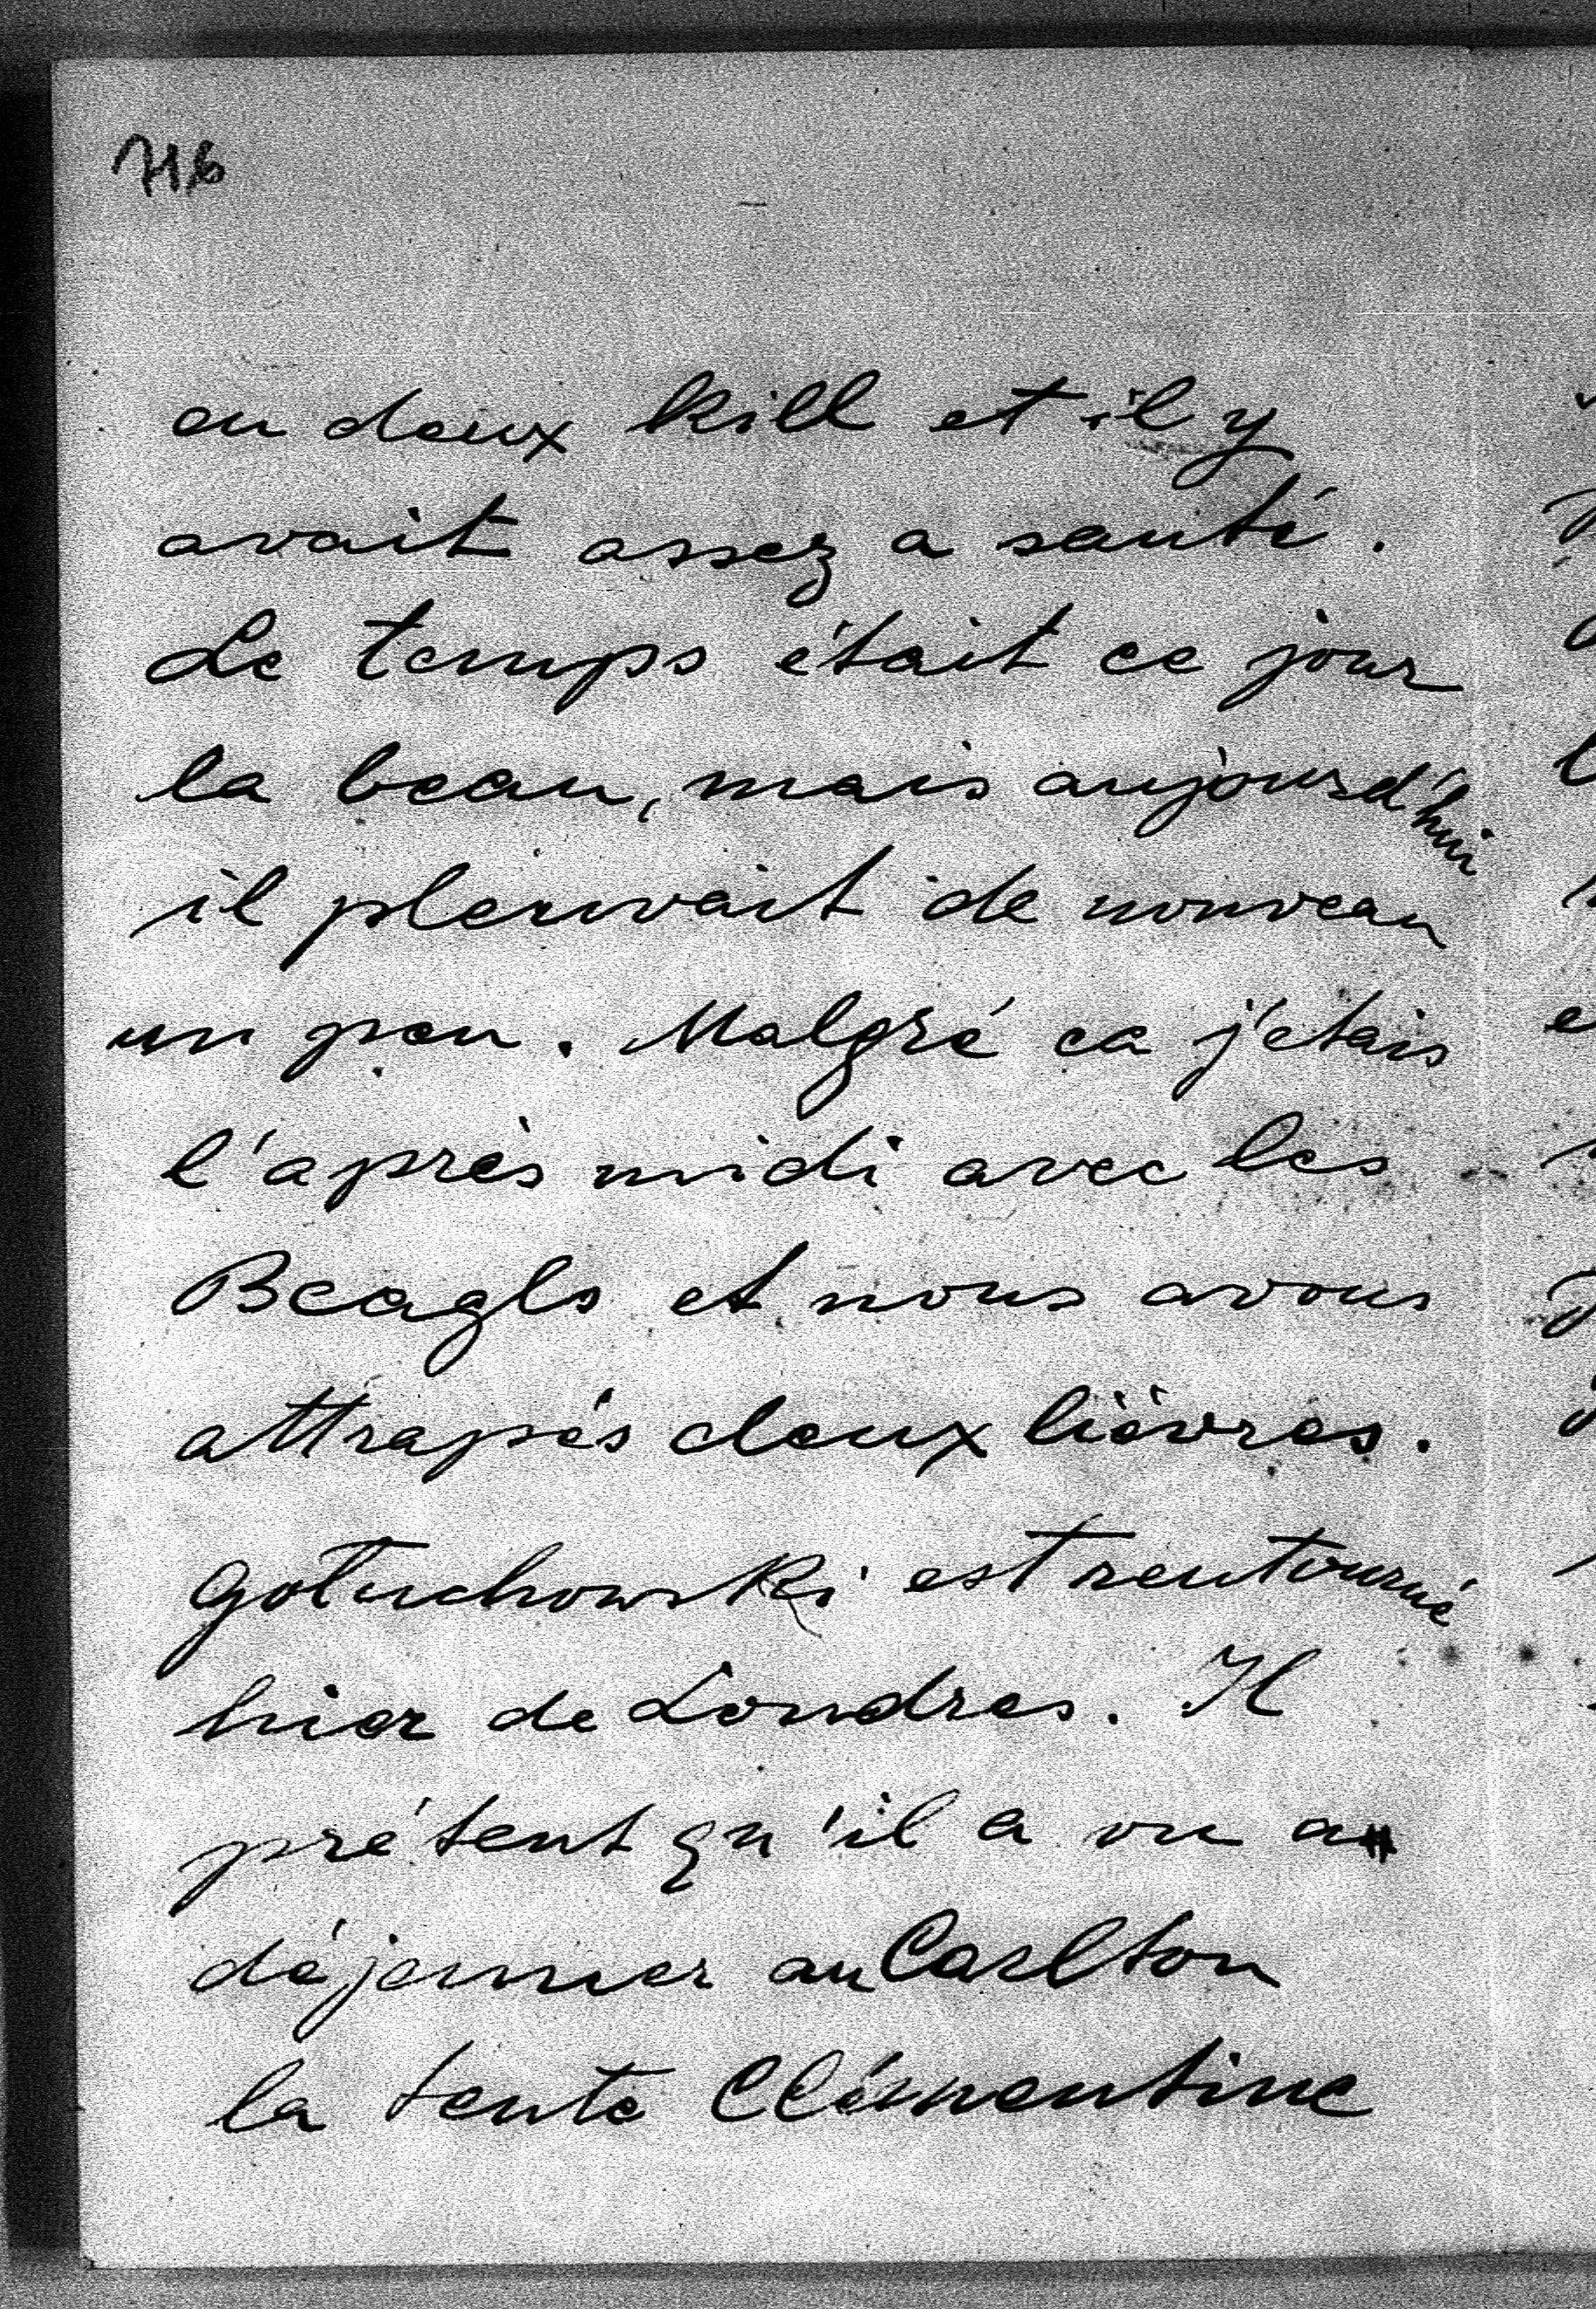 716
on deux kill et il y
avait assez a sauté.
Le temps était ce jour
la beau, mais aujourd'hui
il pleuvait de nouveau
un peu. Malgré ca j'étais
l'après midi avec les
Beagls et nous avons
attrapés deux lièvres.
Gołuchowski est rentourné
hier de Londres. Il
prétent qu'il a vu a
déjeuner au Carlton
la tente Clémentine